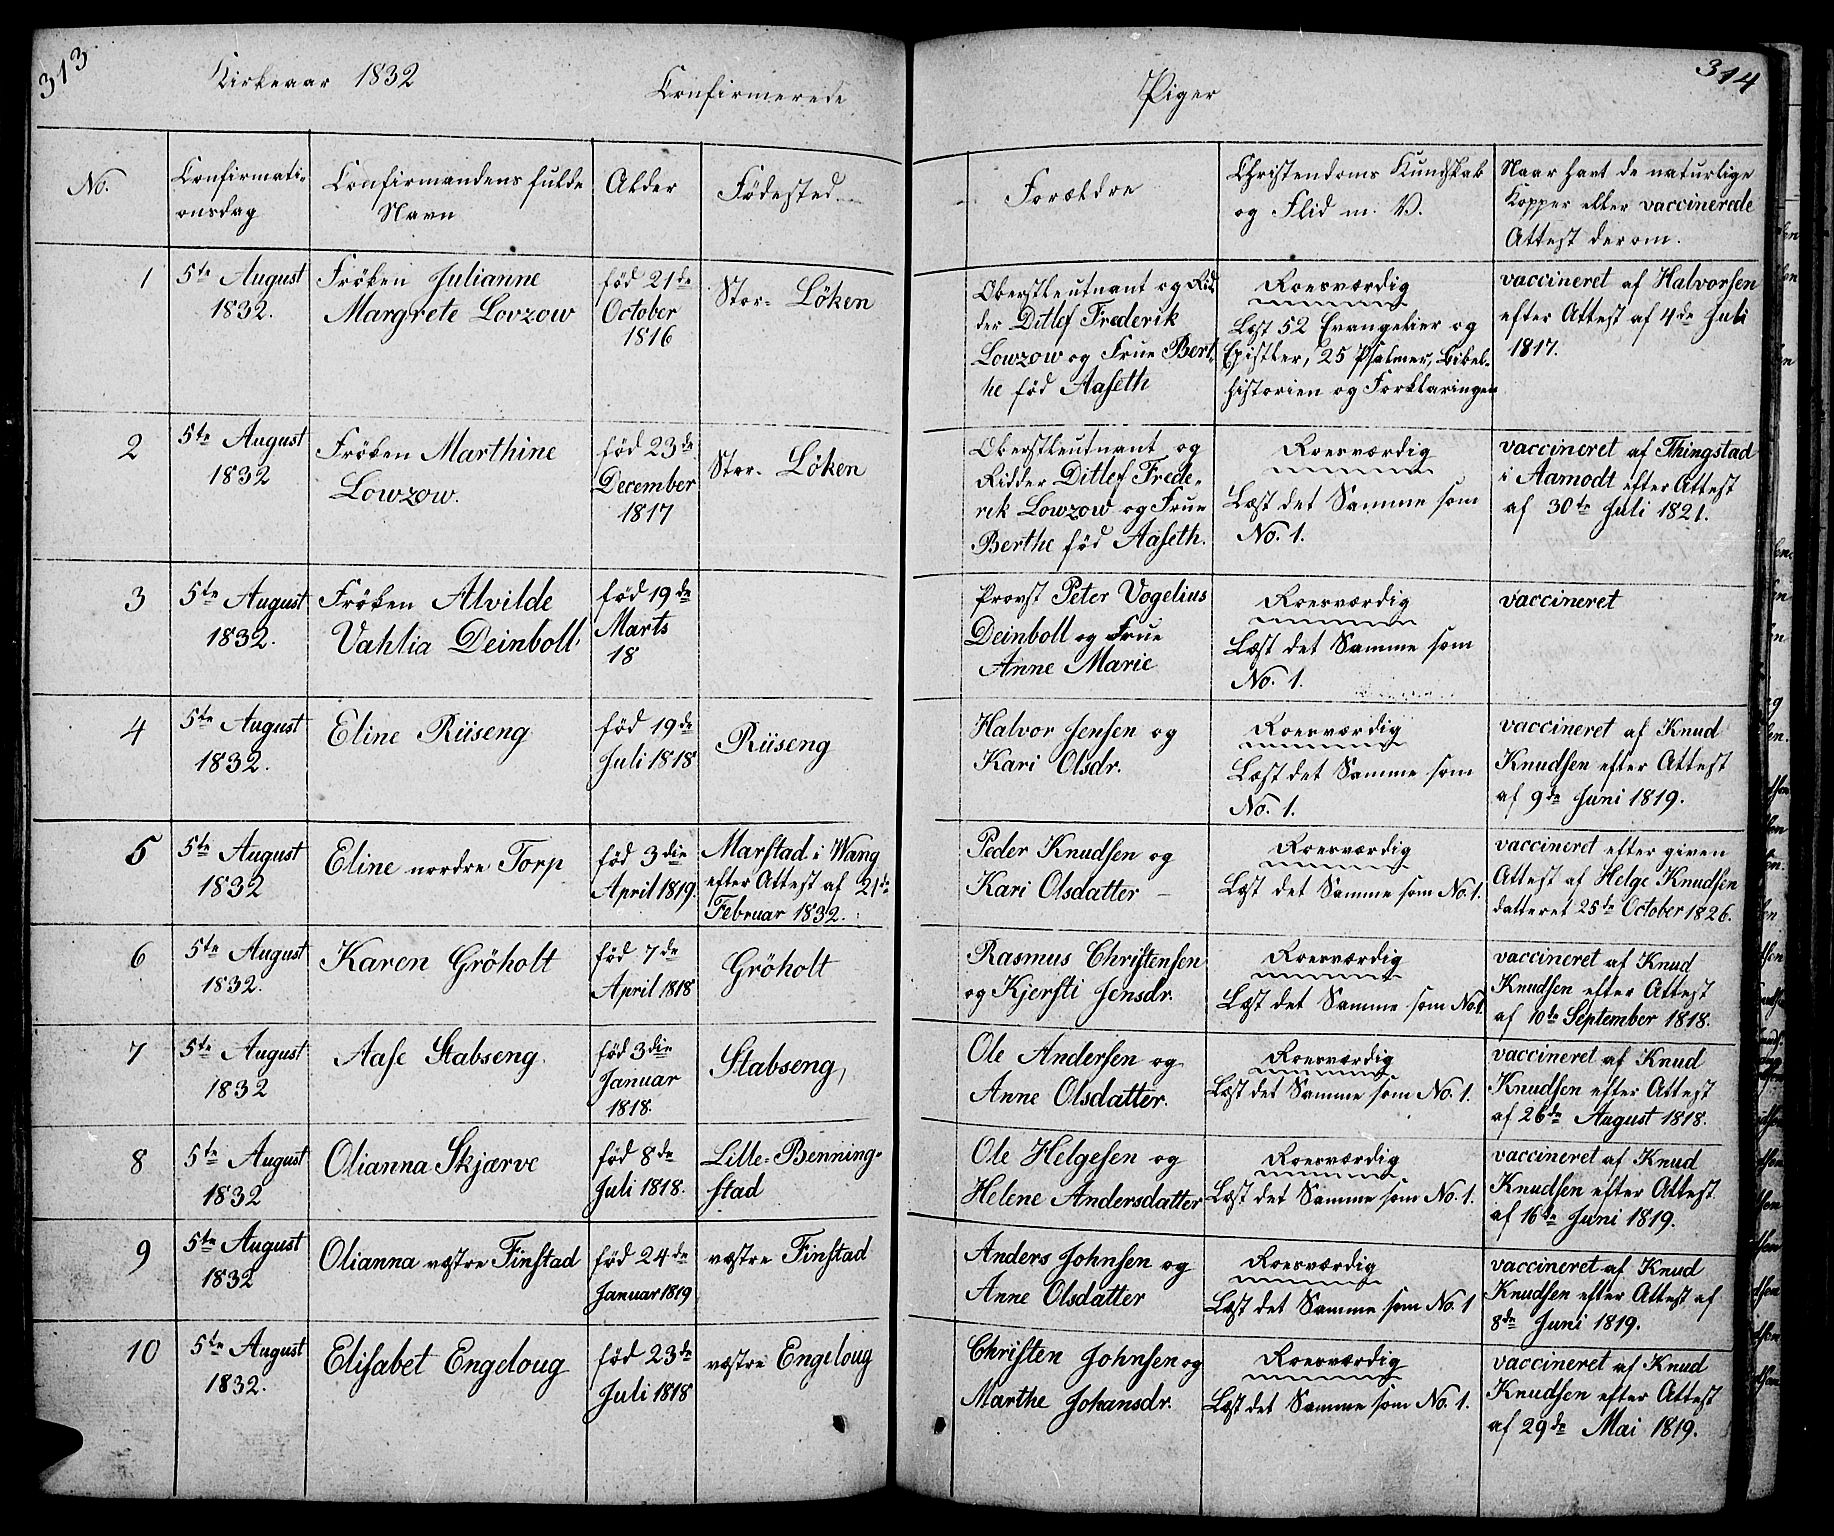 313
Kirkeaar 1832
Confirmerede
Piger
314
No.
Confirmati-
onsdag
Confirmandens fulde
Navn
Alder
Födested
Forældre
Christendoms Kundskab
og Flid m. V.
Naar havt de naturlige
Kopper eller vaccinerede
Attest derom.
1
5te August
1832.
Fröken Julianne
Margrete Lovzow
fød 21de
October
1816
Stor-Löken
Oberstleutnant og Rid
der Ditlef Frederik
Lowzow og Frue Bert-
he fød Aaseth
Roesværdig
Læst 52 Evangelier og
Epistler, 25 Psalmer, Bibel-
historien og Forklaringen
vaccineret af Halvorsen
efter Attest af 4de Juli
1817.
2
5te August
1832
Fröken Marthine
Lowzow.
fød 23de
December
1817
Stor-Löken
Oberstleutnant og
Ridder Ditlef Frede-
rik Lowzow og Frue
Berthe fød Aaseth.
Roesværdig
Læst det Samme som
No. 1.
vaccineret af Thingstad
i Aamodt efter Attest
af 30te Juli 1821.
3
5te August
1832.
Fröken Alvilde
Vahlia Deinboll
fød 19de
Marts
18
Provst Peter Vogelius
Deinboll og Frue
Anne Marie
Roesværdig
Læst det Samme som
No. 1.
vaccineret
4
5te August
1832.
Eline Riiseng
fød 19de
Juli 1818
Riiseng
Halvor Jensen og
Kari Olsdr.
Roesværdig
Læst det Samme som
No. 1.
vaccineret af Knud
Knudsen efter Attest
af 9de Juni 1819.
5
5te August
1832
Eline nordre Torp
fød 3die
April 1819.
Marstad i Wang
efter Attest af 21de
Februar 1832.
Peder Knudsen og
Kari Olsdatter –
Roesværdig
Læst det Samme som No. 1.
vaccineret efter given
Attest af Helge Knudsen
datteret 25de October 1826.
6
5te August
1832.
Karen Gröholt
fød 7de
April 1818
Gröholt
Rasmus Christensen
og Kjersti Jensdr.
Roesværdig
Læst det Samme som No 1.
vaccineret af Knud
Knudsen efter Attest
af 10de September 1818.
7
5te August
1832
Aase Stabseng.
fød 3die
Januar
1818.
Stabseng,
Ole Andersen og
Anne Olsdatter.
Roesværdig
Læst det Samme som No. 1.
vaccineret af Knud
Knudsen efter Attest
af 26de August 1818.
8
5te August
1832
Olianna Skjærve
fød 8de
Juli 1818.
Lille-Benning-
stad
Ole Helgesen og
Helene Andersdatter
Roesværdig
Læst det Samme som No. 1.
vaccineret af Knud
Knudsen efter Attest
af 16de Juni 1819.
9
5te August
1832
Olianna vestre Finstad
fød 24de
Januar 1819
vestre Finstad
Anders Johnsen og
Anne Olsdatter
Roesværdig
Læst det Samme som No. 1
vaccineret af Knud
Knudsen efter Attest af
8de Juni 1819.
10
5te August
1832.
Elisabet Engeloug
fød 23de
Juli 1818
vestre Engeloug
Christen Johnsen og
Marthe Johansdr.
Roesværdig
Læst det Samme som No. 1.
vaccineret af Knud
Knudsen efter Attest
af 29de Mai 1819.